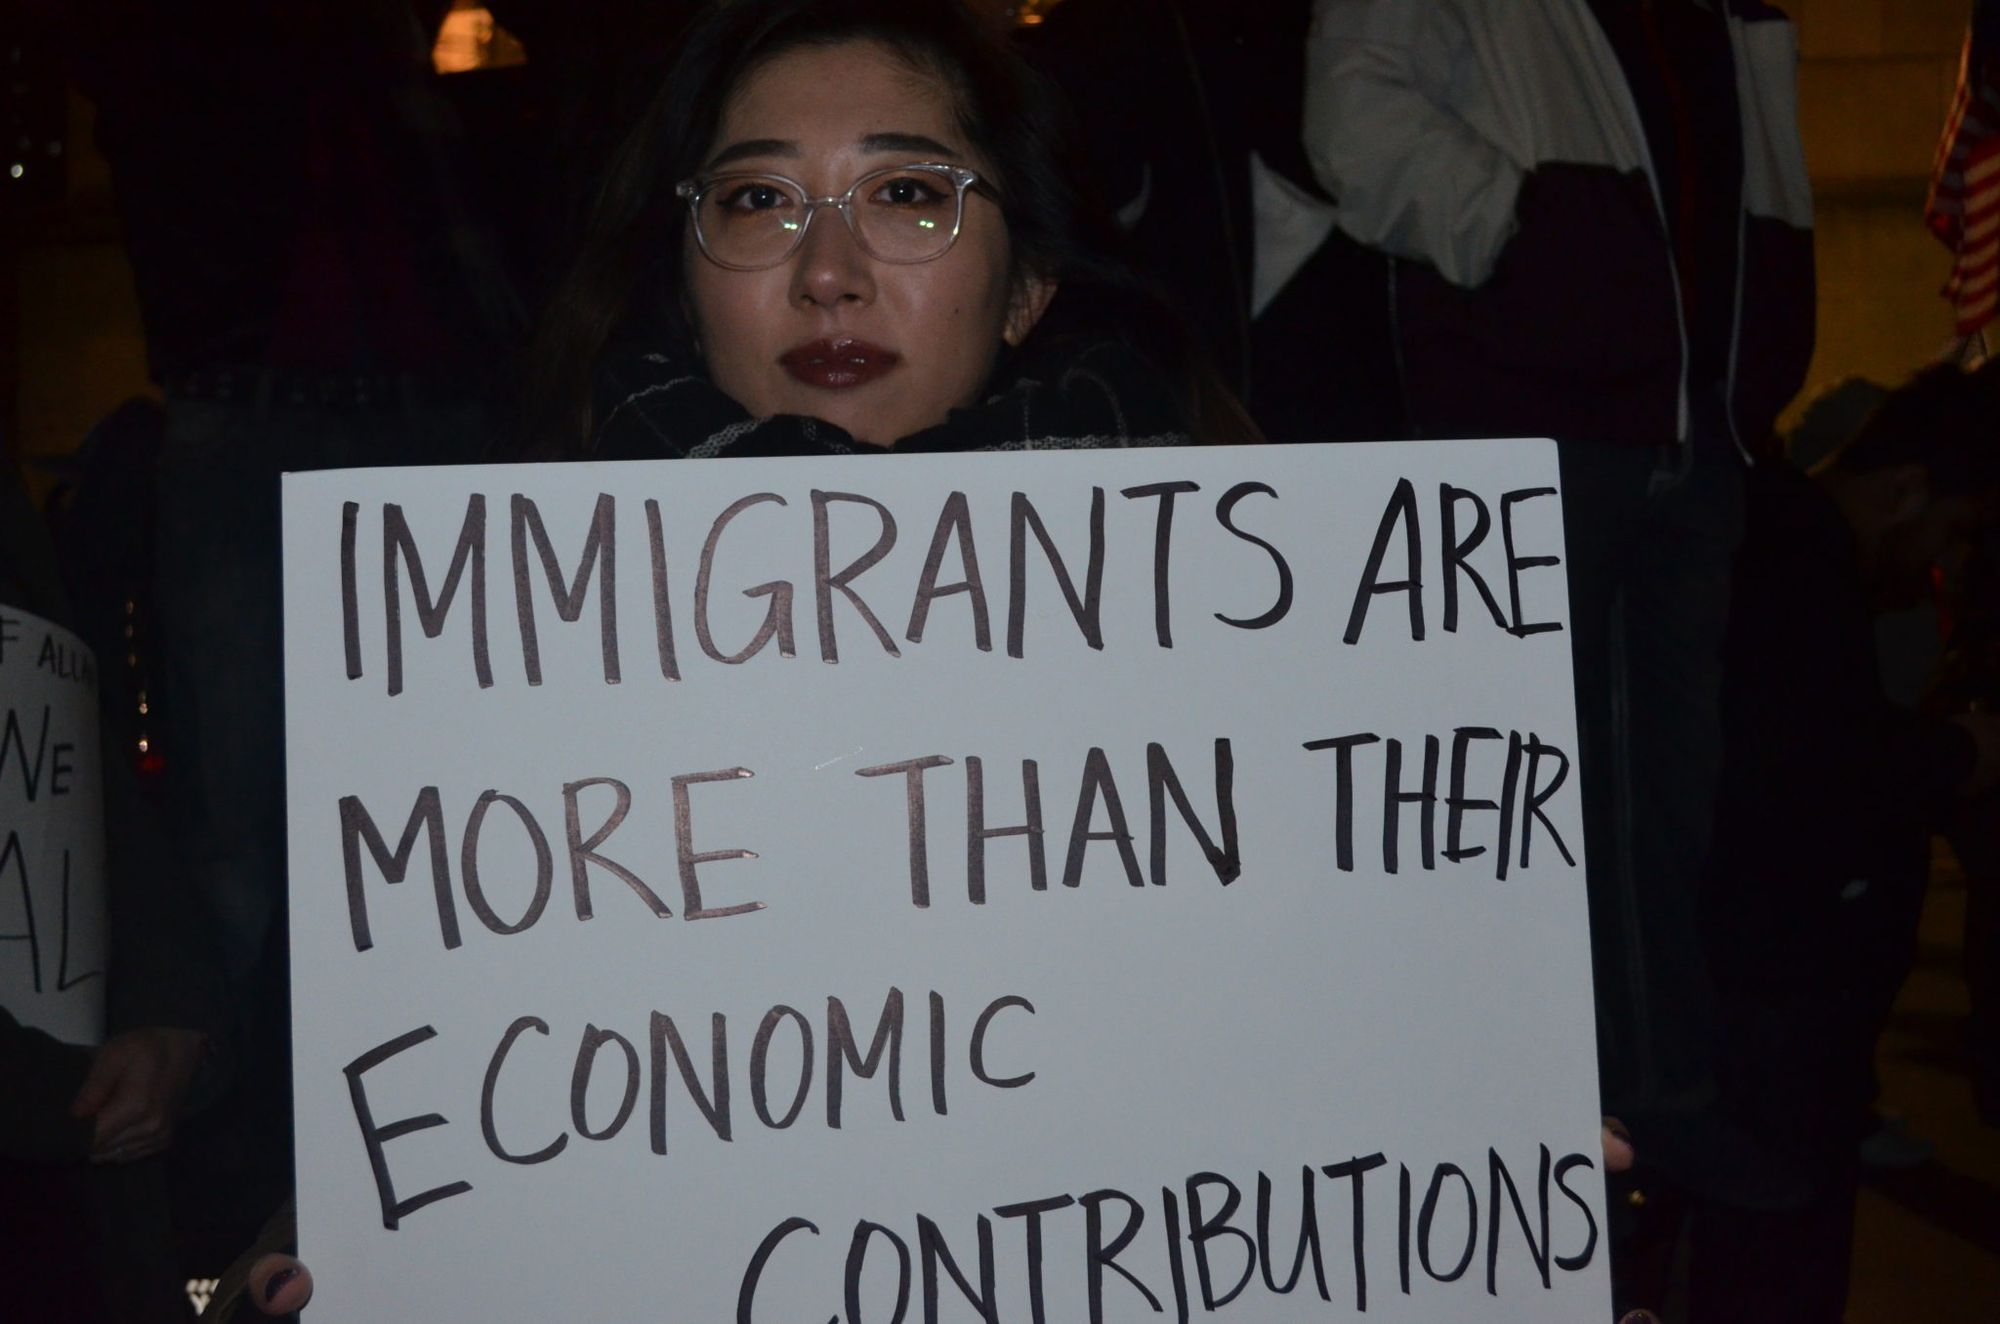 IMMIGRANTS ARE
MORE THAN THEIR
ECONOMIC
CONTRIBUTIONS
WE